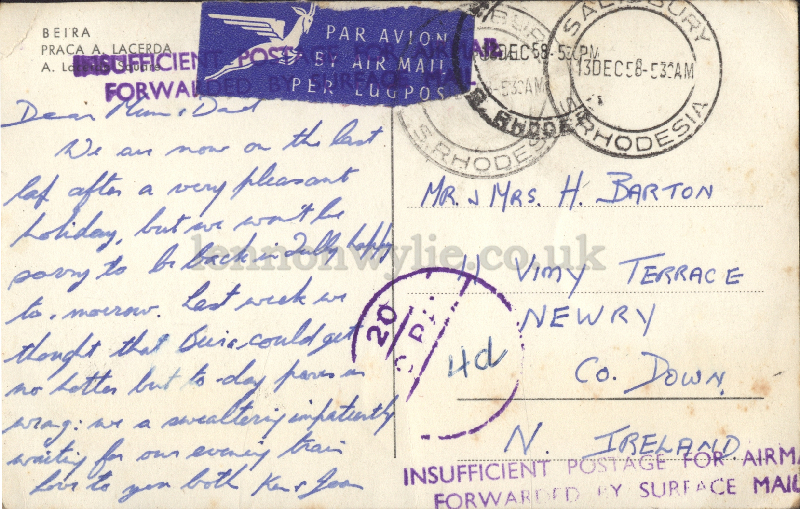 BEIRA
PRACA A. LACERDA
A. Lacerda Square
PAR AVION
BY AIR MAIL
PER LUGPOS
INSUFFICIENT POSTAGE FOR AIRMAIL
FORWARDED BY SURFACE MAIL
SALISBURY
13DEC58-530AM
S. RHODESIA
Dear Mum & Dad
We are now on the last
lap after a very pleasant
holiday, but we won't be
sorry to be back in
to-morrow. Last week we
thought that Beira could get
no hotter but to-day proves us
wrong: we a sweltering impatiently
waiting for our evening train
Love to you both Ken & Joan
MR. & MRS. H. BARTON
11 VIMY TERRACE
NEWRY
CO. DOWN.
N. IRELAND
20
4d
INSUFFICIENT POSTAGE FOR AIRMA
FORWARDED BY SURFACE MAIL
lennonwylie.co.uk